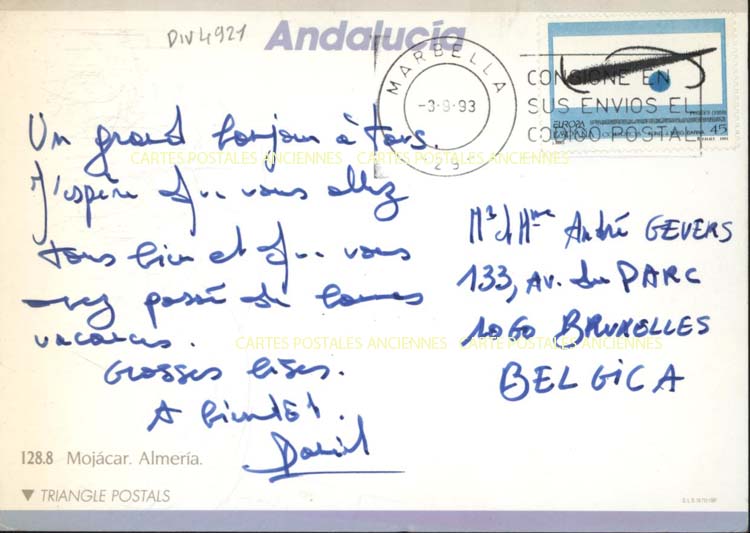 DIV4921
Andalucía
MARBELLA
-3.9.93
29
CONSIGNE EN
SUS ENVIOS EL
CODIGO POSTAL
EUROPA
ESPAÑA
45
Un grand bonjour à tous.
CARTES POSTALES ANCIENNES CARTES POSTALES ANCIENNES
J'espère que vous allez
tous bien et que vous
avez passé de bonnes
vacances.
Grosses bises.
A bientôt.
Daniel
Mr et Mme André GEVERS
133, AV. du PARC
1060 BRUXELLES
CARTES POSTALES ANCIENNES CARTE POSTALES ANCIENNES
BELGICA
128.8 Mojácar. Almería.
▼ TRIANGLE POSTALS